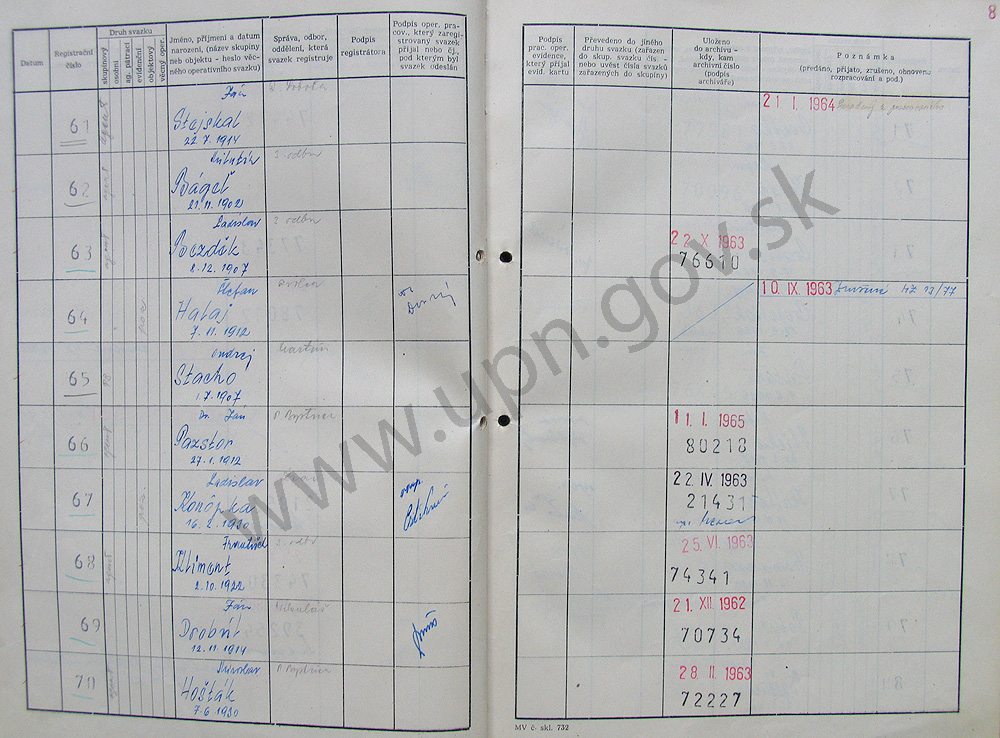 8
Datum
Registrační číslo
Druh svazku
skupinový
osobní
ag. pátrací
evidenční
objektový
věcný oper.
Jméno, příjmení a datum
narození, (název skupiny
neb objektu - heslo věc-
ného operativního svazku)
Správa, odbor,
oddělení, která
svazek registruje
Podpis
registrátora
Podpis oper. pra-
cov., který zaregi-
strovaný svazek
přijal nebo čj.,
pod kterým byl
svazek odeslán
Podpis
prac. oper.
evidence,
který přijal
evid. kartu
Převedeno do jiného
druhu svazku (zařazen
do skup. svazku čís. -
nebo uvést čísla svazků
zařazených do skupiny)
Uloženo
do archivu -
kdy, kam
archivní číslo
(podpis
archiváře)
Poznámka
(předáno, přijato, zrušeno, obnoveno
rozpracování a pod.)
61 agent Ján
Stejskal
22 7. 1914
21 I. 1964
62 agent
Bágeľ
21. 11. 1902
3. odbor
63 agent Ladislav
8. 12. 1907
3 odbor
22 X 1963
76610
64 Štefan
Halaj
7. 11. 1912
10. IX. 1963
65 Ondrej
Stacho
1. 7. 1907
Martin
66 agent Dr. Ján
Pazstor
27. 1. 1912
B Bystrica
11. I. 1965
80218
67 Ladislav
Konôpka
16. 2. 1930
22. IV. 1963
21431
68 agent František
Klimont
2. 10. 1922
25. VI. 1963
74341
69 Ján
Drobný
12. 11. 1914
Mikuláš
21. XII. 1962
70734
70 agent Miroslav
Hošták
7. 6 1930
B Bystrica
28. II. 1963
72227
MV č. skl. 732
www.upn.gov.sk